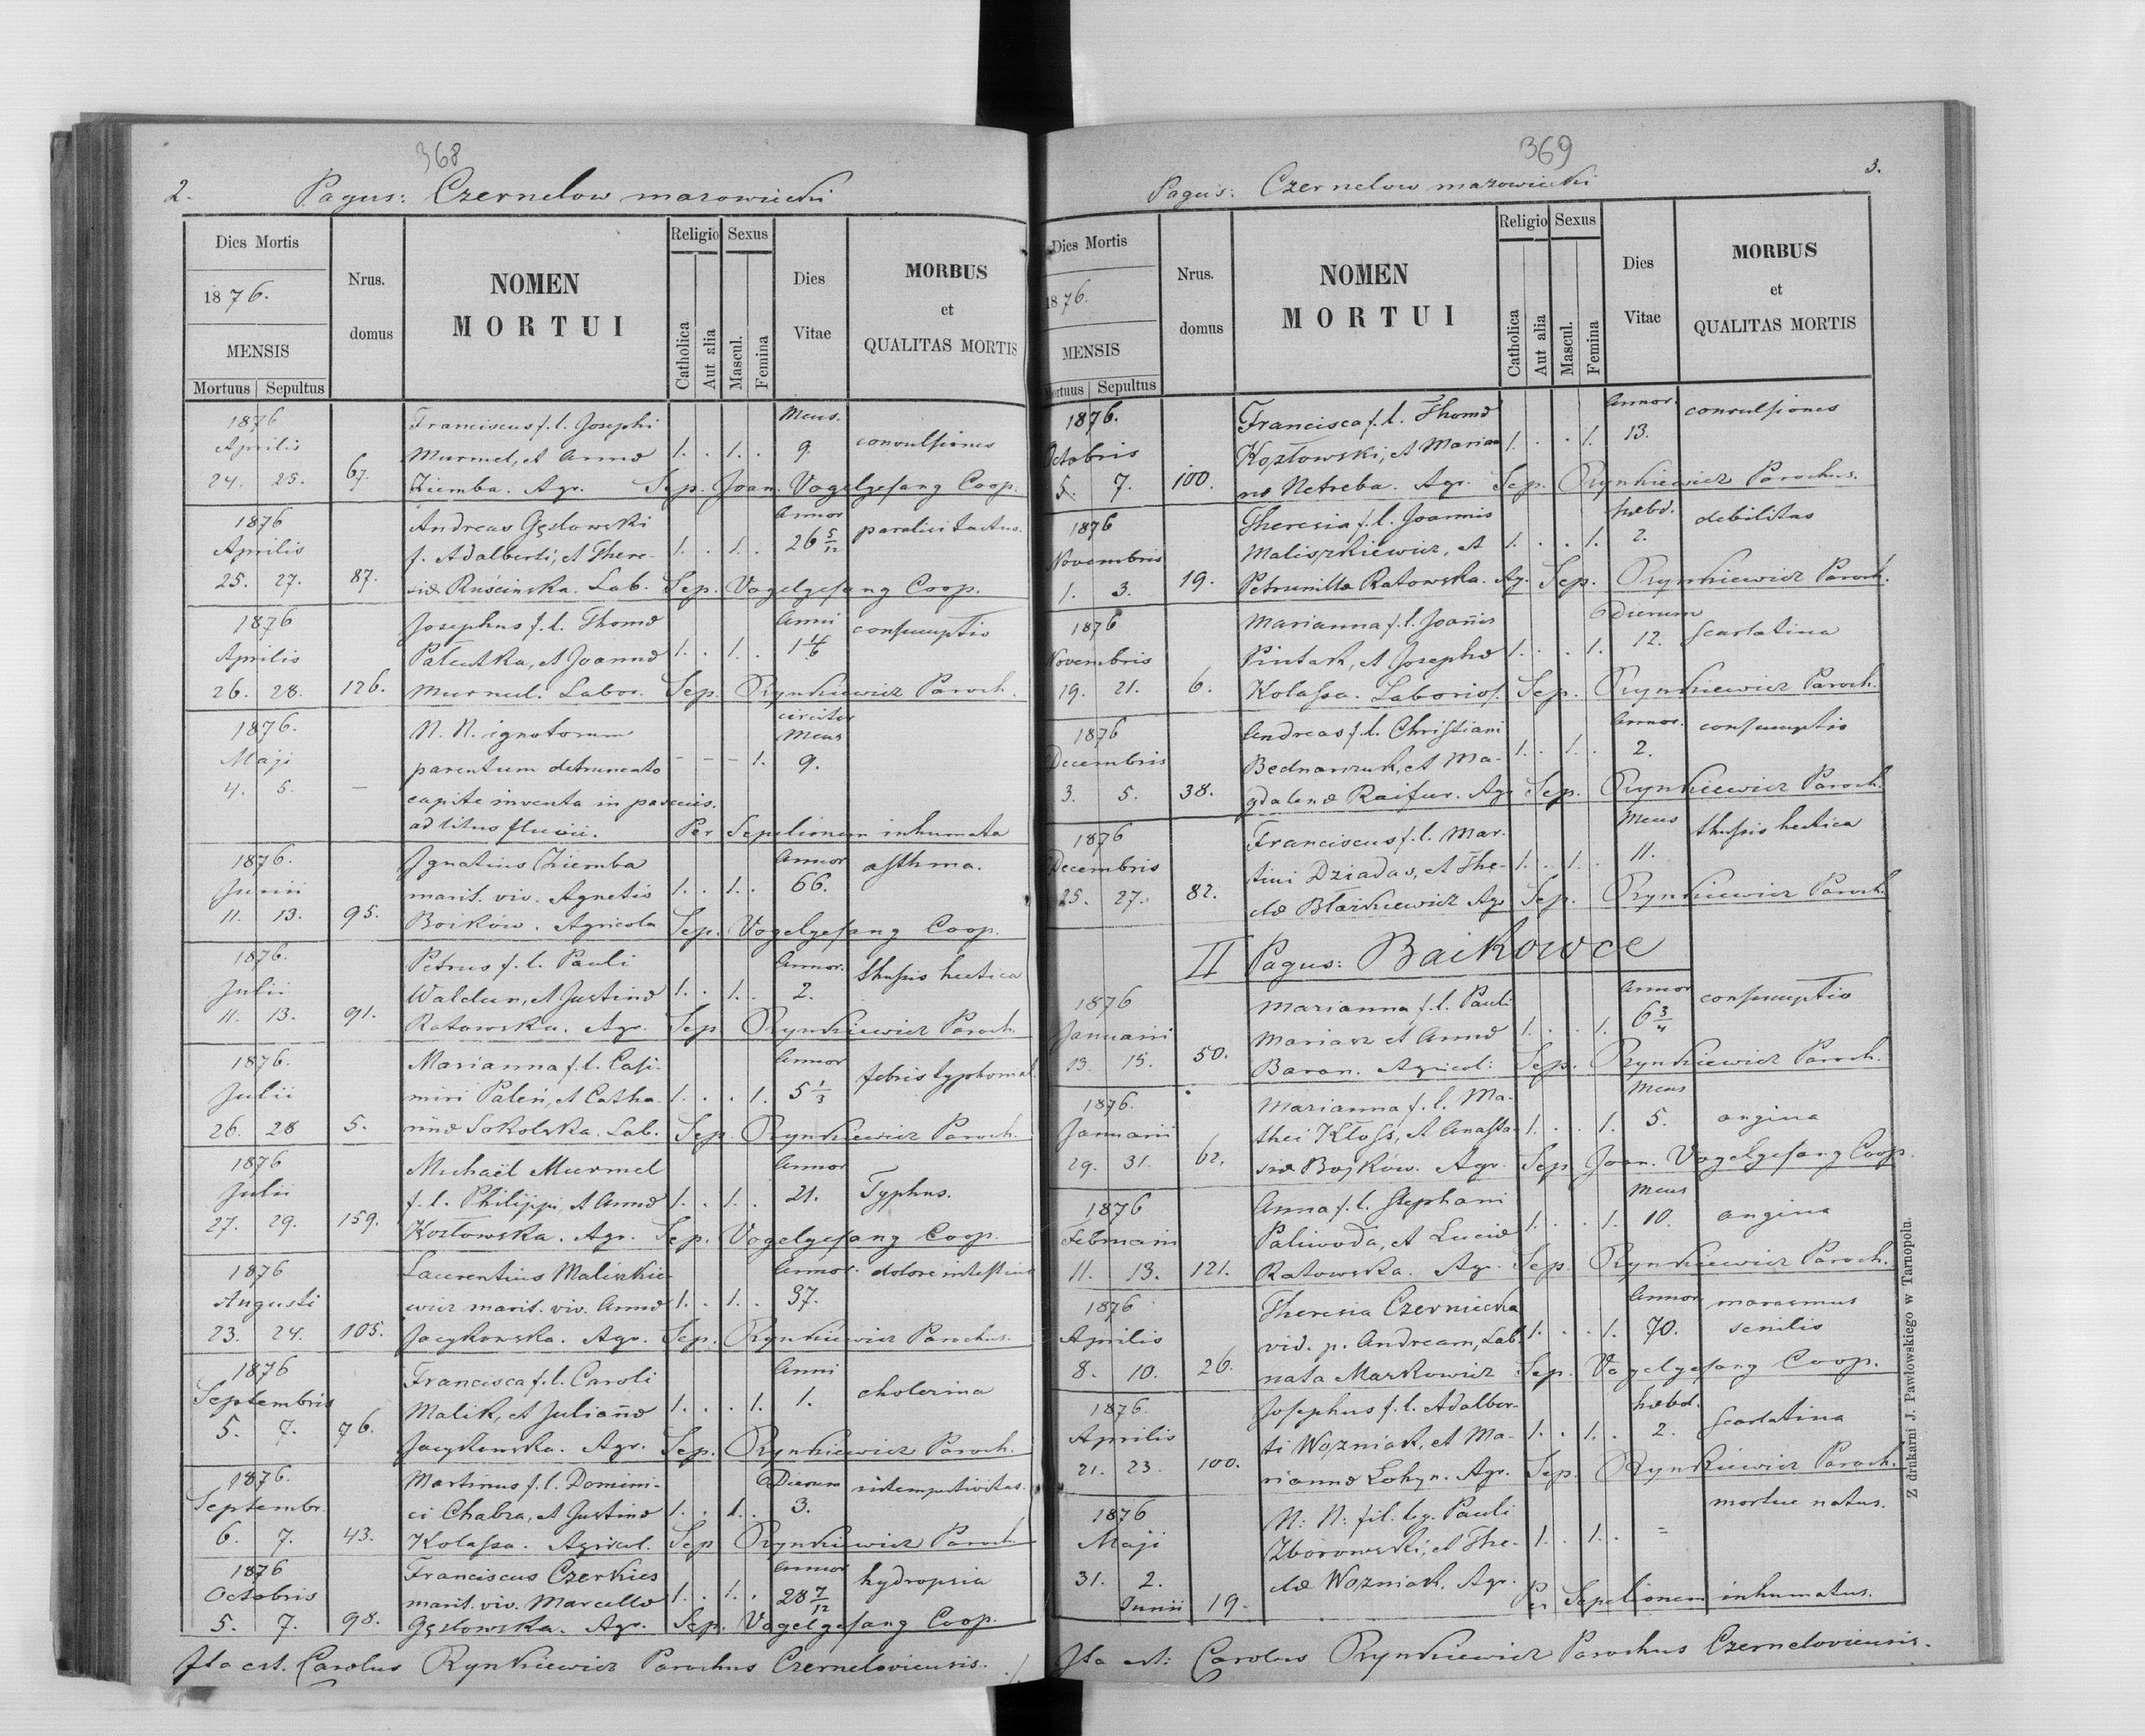 368
2.
Pagus: Czernelow mazowiecki
Dies Mortis
1876.
MENSIS
Mortuus Sepultus
Nrus. domus
NOMEN
MORTUI
Religio Sexus
Catholica
Aut alia
Mascul.
Femina
Dies
Vitae
MORBUS
et
QUALITAS MORTIS
1876 Franciscus f. l. Josephi Mens.
Aprilis Murmel, et Annæ 1. . 1. . 9. convulsiones
24. 25. 67. Ziemba. Agr. Sep. Joan. Vogelgesang Coop.
1876 Andreas Gęslowski Annor
Aprilis f. Adalberti, et There- 1. . 1. . 26 5/12 paralisi tactus.
25. 27. 87. siæ Ruścinska. Lab. Sep. Vogelgesang Coop.
1876 Josephus f. l. Thomæ Anni consumptio
Aprilis et Joannæ 1. . 1. .
26. 28. 126. Labor. Sep. Rynkiewicz Paroch.
1876. N. N. ignotorum circiter Mens
Maji parentum detruncato - - - 1. 9.
4. 5. - capite inventa in pascuis.
ad litus fluvii. Per Sepelionem inhumata
1876. Ignatius Ziemba Annor asthma.
Junii marit. viv. Agnetis 1. . 1. . 66.
11. 13. 95. Boików. Agricola Sep. Vogelgesang Coop.
1876. Petrus f. l. Pauli Annor. thysis hectica
Julii Waldun, et Justinæ 1. . 1. . 2.
11. 13. 91. Ratowska. Agr. Sep Rynkiewicz Paroch.
1876. Marianna f. l. Casi- Annor
Julii miri Paleń, et Catha- 1. . . 1. 5 1/3 febris
26. 28 5. rinæ Sokolska. Lab. Sep. Rynkiewicz Paroch.
1876 Michaël Murmel Annor
Julii f. l. Philippi, et Annæ 1. . 1. . 21. Typhus.
27. 29. 159. Kozłowska. Agr. Sep. Vogelgesang Coop.
1876 Laurentius Maliszkie- Annor. dolore intestin
Augusti wicz marit. viv. Annæ 1. . 1. . 37.
23. 24. 105. Jacykowska. Agr. Sep. Rynkiewicz Parochus.
1876 Francisca f. l. Caroli Anni
Septembris Malik, et Juliannæ 1. . . 1. 1. cholerina
5. 7. 76. Agr. Sep. Rynkiewicz Paroch.
1876. Martinus f. l. Domini- Dierum intempestivitas.
Septembr. ci Chabza, et Justinæ 1. . 1. . 3.
6. 7. 43. Kolassa. Agricul. Sep Rynkiewicz Paroch.
1876 Franciscus Czerkies Annor
Octobris marit. viv. Marcellæ 1. . 1. . 28 7/12 hydropsia
5. 7. 98. Gęslowska. Agr. Sep. Vogelgesang Coop.
Ita est. Carolus Rynkiewicz Parochus Czerneloviensis.
369
3.
Pagus: Czernelow mazowiecki
Dies Mortis
1876.
MENSIS
Mortuus Sepultus
Nrus. domus
NOMEN
MORTUI
Religio Sexus
Catholica
Aut alia
Mascul.
Femina
Dies
Vitae
MORBUS
et
QUALITAS MORTIS
1876. Francisca f. l. Thomæ Annor. convulsiones
Octobris Kozłowski, et Marian 1. . . 1. 13.
5. 7. 100. næ Netreba. Agr. Sep. Rynkiewicz Parochus.
1876 Theresia f. l. Joannis hebd. debilitas
Novembris Maliszkiewicz, et 1. . . 1. 2.
1. 3. 19. Petrunillæ Ratowska. Ag. Sep. Rynkiewicz Paroch.
1876 Marianna f. l. Joañis Dierum
Novembris Pintak, et Josephæ 1. . . 1. 12. scarlatina
19. 21. 6. Kolassa. Laborios. Sep. Rynkiewicz Paroch.
1876 Andreas f. l. Christiani Annor. consumptio
Decembris Bednarczuk, et Ma- 1. . 1. . 2.
3. 5. 38. gdalenæ Raifur. Agr Sep. Rynkiewicz Paroch.
1876 Franciscus f. l. Mar- Mens thysis hectica
Decembris tini Dziadas, et The- 1. . 1. . 11.
25. 27. 82. clæ Błażkiewicz Agr Sep. Rynkiewicz Paroch.
II Pagus: Baikowce
1876 Marianna f. l. Pauli Annor consumptio
Januarii Mariasz et Annæ 1. . . 1. 6 3/4
13. 15. 50. Baran. Agricol: Sep. Rynkiewicz Paroch.
1876. Marianna f. l. Ma- Mens
Januarii thei Kloss, et Anasta- 1. . . 1. 5. angina
29. 31. 62. siæ Bojków. Agr. Sep. Joan. Vogelgesang Coop.
1876 Anna f. l. Stephani Mens
Februarii Paliwoda, et Luciæ 1. . . 1. 10. angina
11. 13. 121. Ratowska. Agr. Sep. Rynkiewicz Paroch.
1876 Theresia Czerniecka Annor marasmus
Aprilis vid. p. Andream, Lab. 1. . . 1. 70. senilis
8. 10. 26. nata Markowicz Sep. Vogelgesang Coop.
1876. Josephus f. l. Adalber- hebd.
Aprilis ti Wozniak, et Ma- 1. . 1. . 2. scarlatina
21. 23. 100. riannæ Lohyn. Agr. Sep. Rynkiewicz Paroch.
1876 N: N: fil: leg. Pauli mortue natus.
Maji Zborowski, et The- 1. . 1. . =
31. 2. clæ Wozniak. Agr.
Junii 19. Per Sepelionem inhumatus.
Ita est: Carolus Rynkiewicz Parochus Czerneloviensis.
Z drukarni J. Pawłowskiego w Tarnopolu.